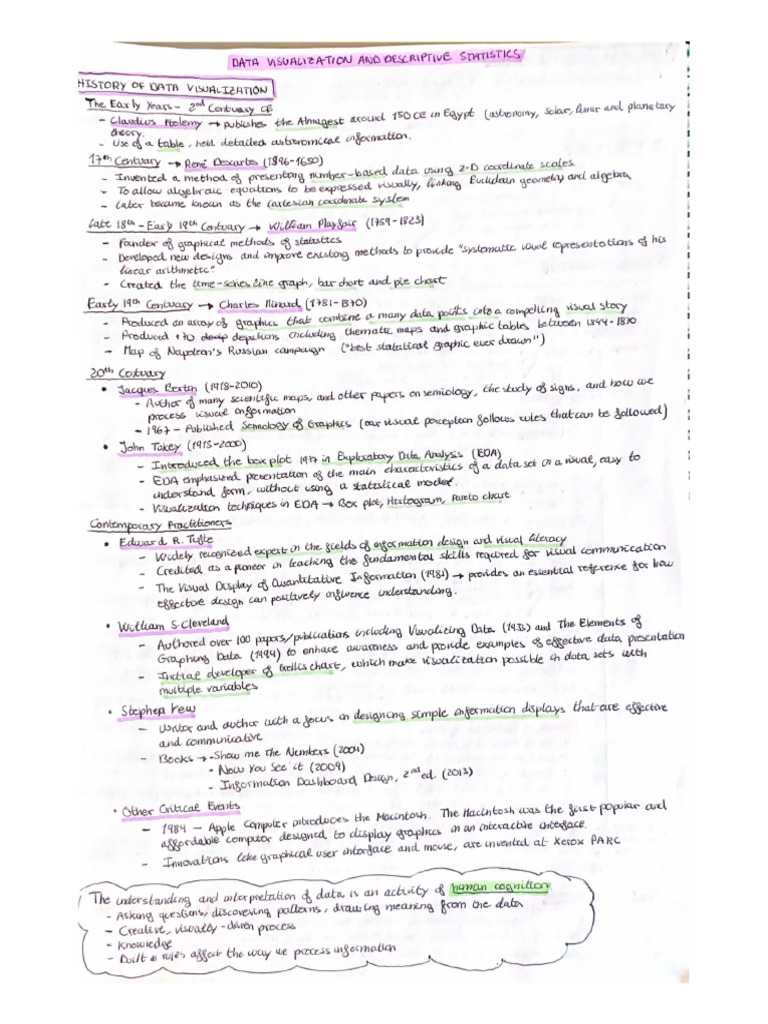 DATA VISUALIZATION AND DESCRIPTIVE STATISTICS
HISTORY OF DATA VISUALIZATION
The Early Years - 2nd Centuary CE
- Claudius Ptolemy → publishes the Almagest around 150 CE in Egypt (astronomy, solar, lunar and planetary
theory.
- Use of a table, held detailed astronomical information.
17th Centuary → René Descartes (1596-1650)
- Invented a method of presenting number-based data using 2-D coordinate scales.
- To allow algebraic equations to be expressed visually, linking Euclidean geometry and algebra
- Later became known as the Cartesian coordinate system
Late 18th - Early 19th Centuary → William Playfair (1759-1823)
- Founder of graphical methods of statistics
- Developed new designs and improve existing methods to provide "systematic visual representations of his
linear arithmetic"
- Created the time-series line graph, bar chart and pie chart
Early 19th Centuary → Charles Minard (1781-1870)
- Produced an array of graphics that combine a many data points into a compelling visual story
- Produced depictions including thematic maps and graphic tables between 1844-1870
- Map of Napoleon's Russian campaign ("best statistical graphic ever drawn")
20th Centuary
• Jacques Bertin (1918-2010)
- Author of many scientific maps, and other papers on semiology, the study of signs, and how we
process visual information
- 1967 - Published Semiology of Graphics (our visual perception follows rules that can be followed)
• John Tukey (1915-2000)
- Introduced the box plot 1977 in Exploratory Data Analysis (EDA)
- EDA emphasized presentation of the main characteristics of a data set in a visual, easy to
understand form, without using a statistical model.
- Visualization techniques in EDA → Box plot, Histogram, Pareto chart
Contemporary Practitioners
• Edward R. Tufte
- Widely recognized expert in the fields of information design and visual literacy
- Credited as a pioneer in teaching the fundamental skills required for visual communication
- The Visual Display of Quantitative Information → provides an essential reference for how
effective design can positively influence understanding.
• William S. Cleveland
- Authored over 100 papers/publications including Visualizing Data and The Elements of
Graphing Data (1994) to enhance awareness and provide examples of effective data presentation
- Initial developer of trellis chart, which make visualization possible in data sets with
multiple variables
• Stephen Few
- Writer and author with a focus on designing simple information displays that are effective
and communicative
- Books → - Show me the Numbers (2004)
- Now You See it (2009)
- Information Dashboard Design, 2nd ed. (2013)
• Other Critical Events
- 1984 - Apple Computer introduces the Macintosh. The Macintosh was the first popular and
affordable computer designed to display graphics in an interactive interface.
- Innovations like graphical user interface and mouse, are invented at Xerox PARC
The understanding and interpretation of data is an activity of human cognition
- Asking questions, discovering patterns, drawing meaning from the data
- Creative, visually-driven process
- Knowledge
- Built in rules affect the way we process information